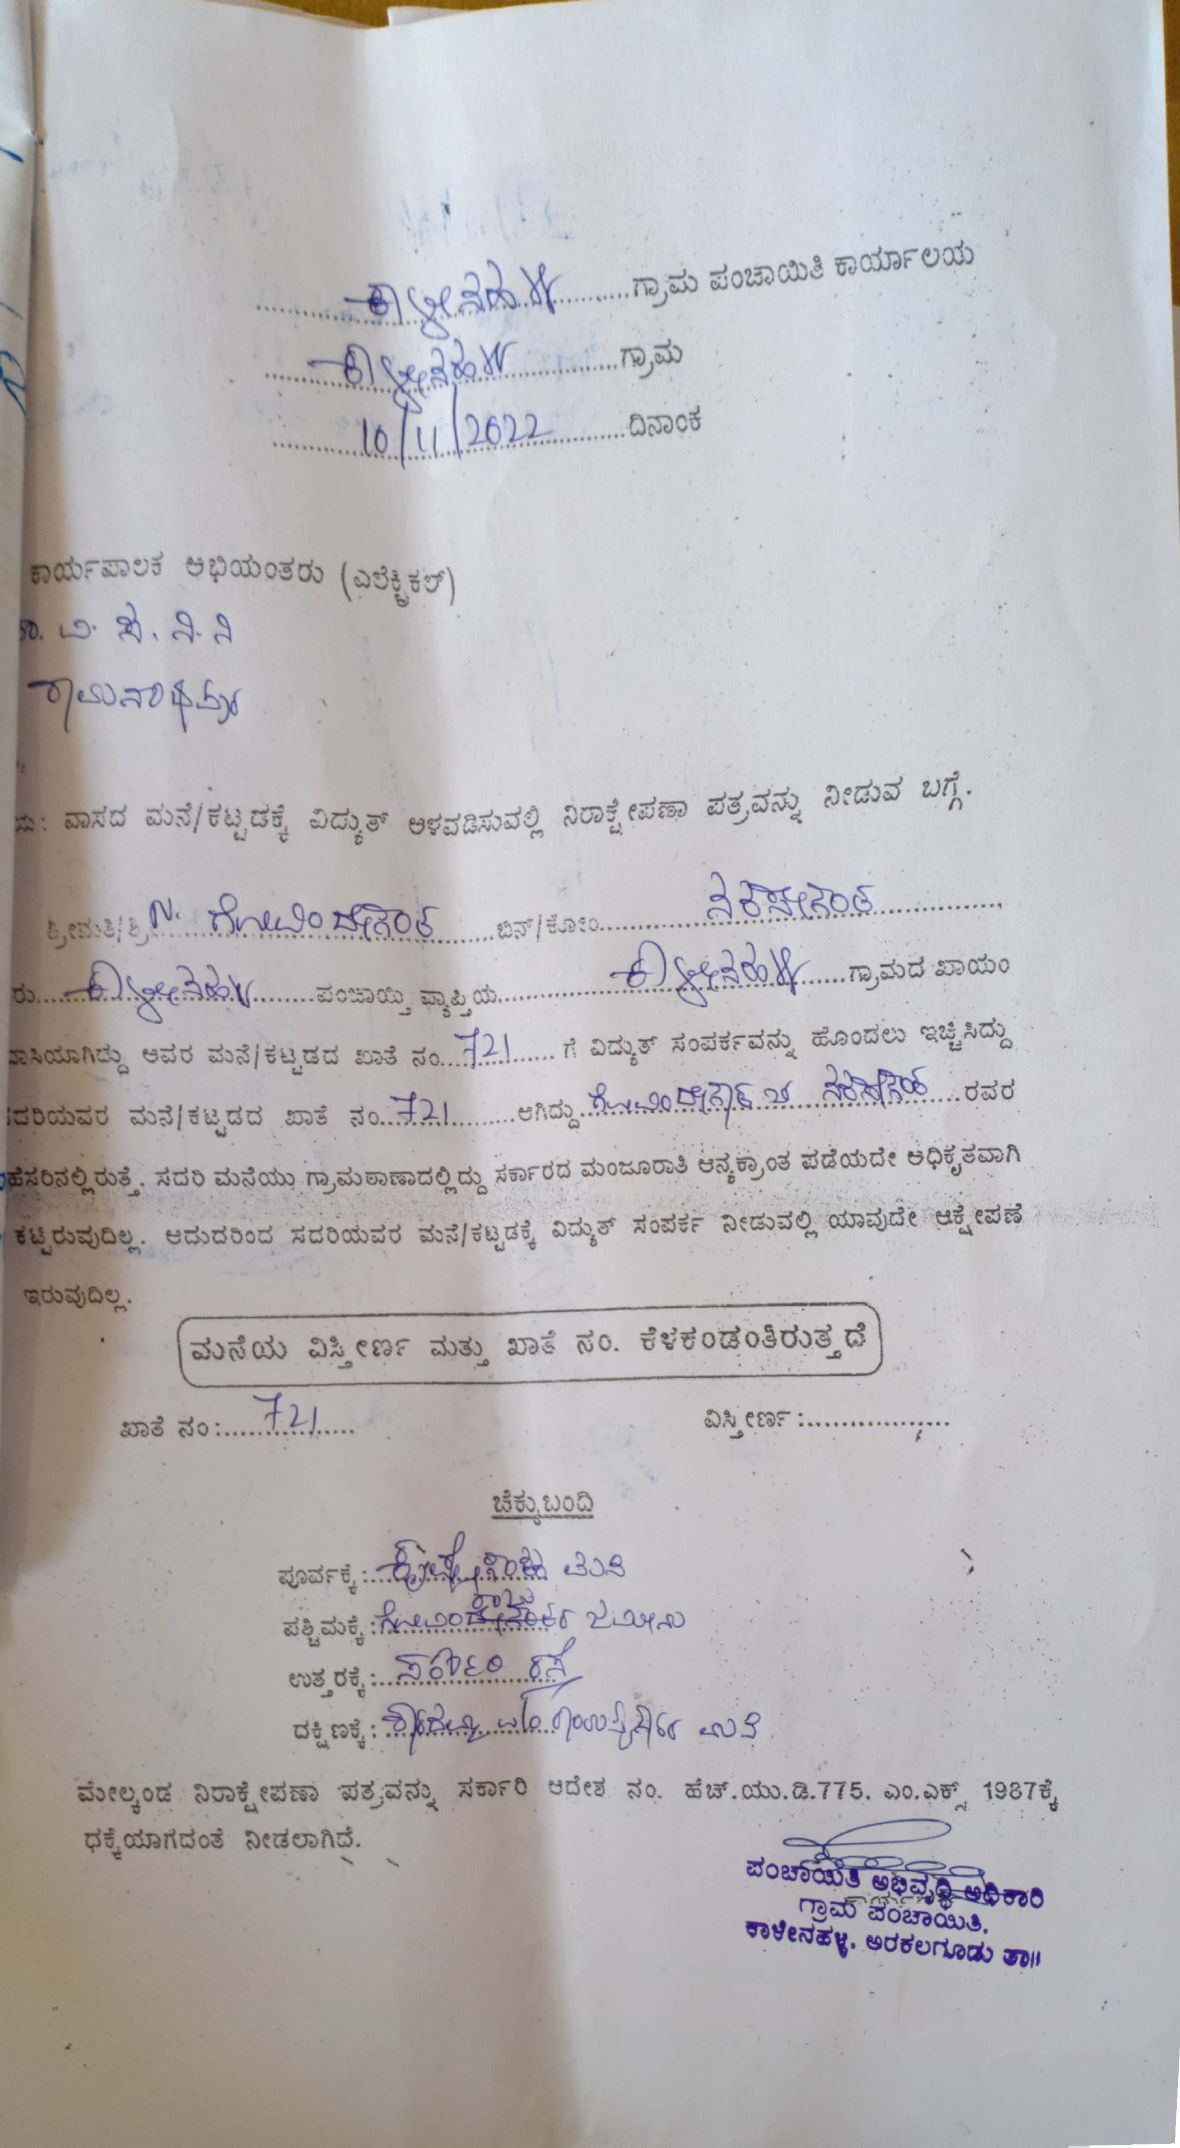 ಕಾಳೇನಹಳ್ಳಿ ಗ್ರಾಮ ಪಂಚಾಯಿತಿ ಕಾರ್ಯಾಲಯ
ಕಾಳೇನಹಳ್ಳಿ ಗ್ರಾಮ
10/11/2022 ದಿನಾಂಕ
ಕಾರ್ಯಪಾಲಕ ಅಭಿಯಂತರು (ಎಲೆಕ್ಟ್ರಿಕಲ್)
ವಿ. ಸ. ನಿ. ನಿ
ರಾಮನಾಥಪುರ
ವಾಸದ ಮನೆ/ಕಟ್ಟಡಕ್ಕೆ ವಿದ್ಯುತ್ ಅಳವಡಿಸುವಲ್ಲಿ ನಿರಾಕ್ಷೇಪಣಾ ಪತ್ರವನ್ನು ನೀಡುವ ಬಗ್ಗೆ.
ಶ್ರೀಮತಿ/ಶ್ರೀ N. ಗೋವಿಂದೇಗೌಡ ಬಿನ್/ಕೋಂ ನರಸೇಗೌಡ
ರು ಕಾಳೇನಹಳ್ಳಿ ಪಂಚಾಯ್ತಿ ವ್ಯಾಪ್ತಿಯ ಕಾಳೇನಹಳ್ಳಿ ಗ್ರಾಮದ ಖಾಯಂ
ವಾಸಿಯಾಗಿದ್ದು ಅವರ ಮನೆ/ಕಟ್ಟಡದ ಖಾತೆ ನಂ. 721 ಗೆ ವಿದ್ಯುತ್ ಸಂಪರ್ಕವನ್ನು ಹೊಂದಲು ಇಚ್ಚಿಸಿದ್ದು
ಸದರಿಯವರ ಮನೆ/ಕಟ್ಟಡದ ಖಾತೆ ನಂ. 721 ಆಗಿದ್ದು ಗೋವಿಂದೇಗೌಡ ಬಿ ನರಸೇಗೌಡ ರವರ
ಹೆಸರಿನಲ್ಲಿರುತ್ತೆ. ಸದರಿ ಮನೆಯು ಗ್ರಾಮಠಾಣಾದಲ್ಲಿದ್ದು ಸರ್ಕಾರದ ಮಂಜೂರಾತಿ ಆನ್ಯಕ್ರಾಂತ ಪಡೆಯದೇ ಅಧಿಕೃತವಾಗಿ
ಕಟ್ಟಿರುವುದಿಲ್ಲ. ಆದುದರಿಂದ ಸದರಿಯವರ ಮನೆ/ಕಟ್ಟಡಕ್ಕೆ ವಿದ್ಯುತ್ ಸಂಪರ್ಕ ನೀಡುವಲ್ಲಿ ಯಾವುದೇ ಆಕ್ಷೇಪಣೆ
ಇರುವುದಿಲ್ಲ.
ಮನೆಯ ವಿಸ್ತೀರ್ಣ ಮತ್ತು ಖಾತೆ ನಂ. ಕೆಳಕಂಡಂತಿರುತ್ತದೆ
ಖಾತೆ ನಂ: 721 ವಿಸ್ತೀರ್ಣ:
ಚೆಕ್ಕುಬಂದಿ
ಪೂರ್ವಕ್ಕೆ: ಮನೆ
ಪಶ್ಚಿಮಕ್ಕೆ: ಜಮೀನು
ಉತ್ತರಕ್ಕೆ: ಸರ್ಕಾರಿ ರಸ್ತೆ
ದಕ್ಷಿಣಕ್ಕೆ:
ಮೇಲ್ಕಂಡ ನಿರಾಕ್ಷೇಪಣಾ ಪತ್ರವನ್ನು ಸರ್ಕಾರಿ ಆದೇಶ ನಂ. ಹೆಚ್.ಯು.ಡಿ.775. ಎಂ.ಎಕ್ಸ್ 1987ಕ್ಕೆ
ಧಕ್ಕೆಯಾಗದಂತೆ ನೀಡಲಾಗಿದೆ.
ಪಂಚಾಯಿತಿ ಅಭಿವೃದ್ಧಿ ಅಧಿಕಾರಿ
ಗ್ರಾಮ ಪಂಚಾಯಿತಿ,
ಕಾಳೇನಹಳ್ಳಿ, ಅರಕಲಗೂಡು ತಾ||